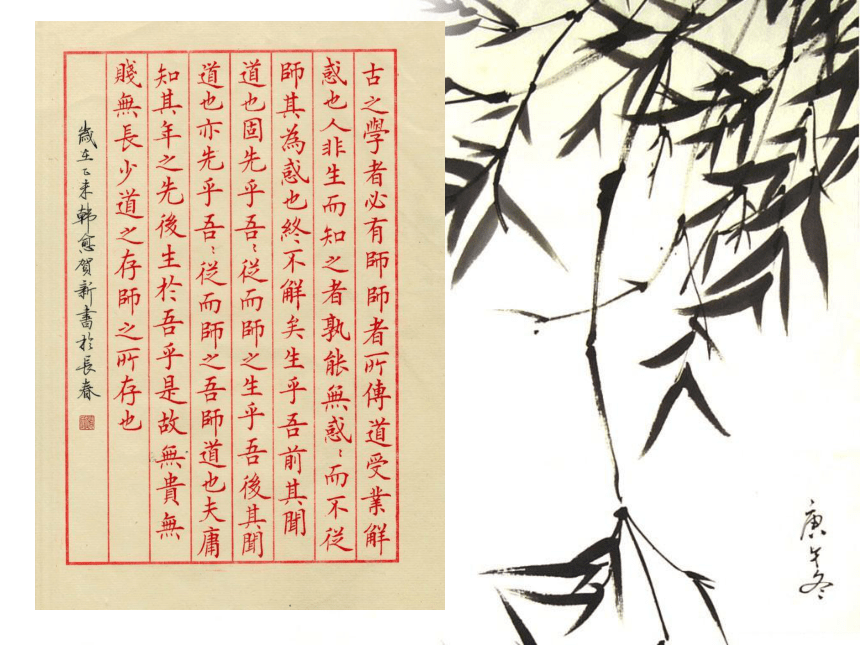 古之學者必有師師者所傳道受業解
惑也人非生而知之者孰能無惑〻而不從
師其為惑也終不解矣生乎吾前其聞
道也固先乎吾〻從而師之生乎吾後其聞
道也亦先乎吾〻從而師之吾師道也夫庸
知其年之先後生於吾乎是故無貴無
賤無長少道之存師之所存也
歲在乙未韩愈贺新書於長春
庚午冬